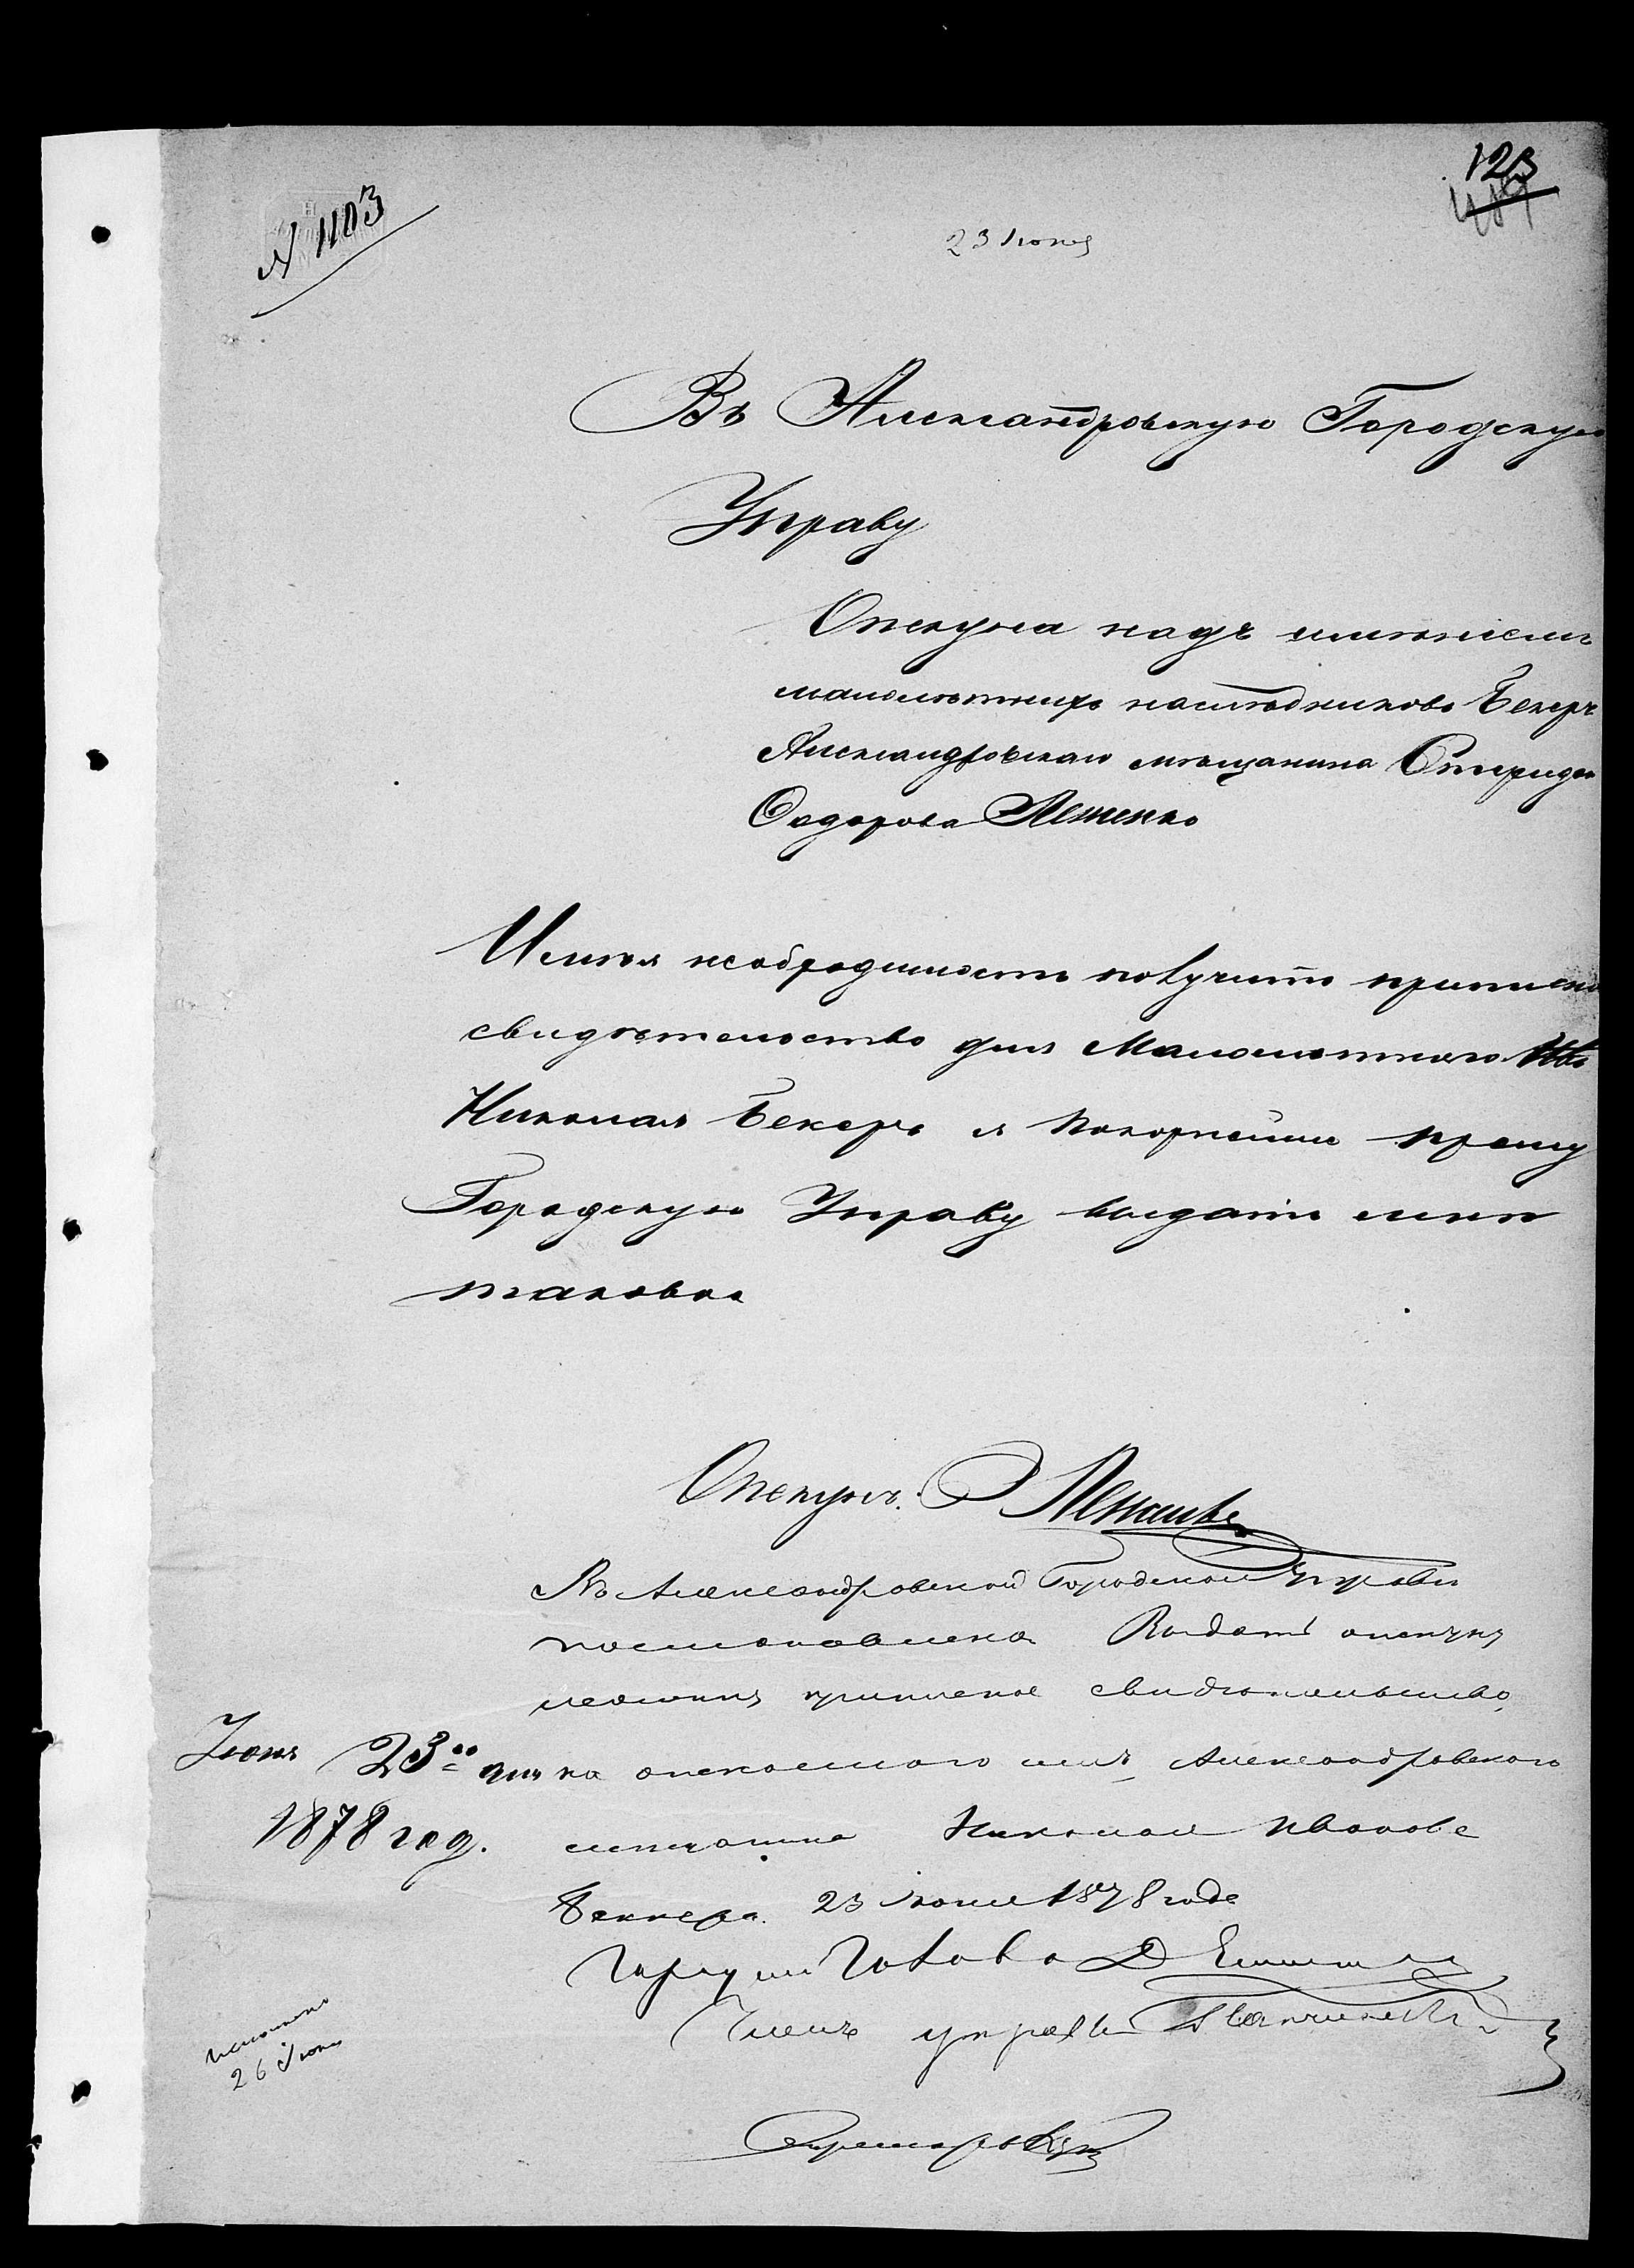 123
489
№ 1103
23 Іюня
Въ Александровскую Городскую
Управу
Опекуна надъ имѣніемъ
малолѣтнихъ наслѣдниковъ Бекеръ
Александровскаго мѣщанина Спиридона
Сидорова Лященко
Имѣя необходимость получить приписное
свидѣтельство для Малолѣтняго
Николая Бекеръ я покорнѣйше прошу
Городскую Управу выдать мнѣ
таковое
Опекунъ
Въ Александровской Городской Управѣ
постановлено Выдать опекуну
приписное свидѣтельство,
Іюня 23го дня
на опекаемого имъ Александровского
1878 год.
мѣщанина Николая Иванова
Беккера. 23 Іюня 1878 года
Городской Голова
Членъ управы
Секретарь
исполнено
26 Іюня